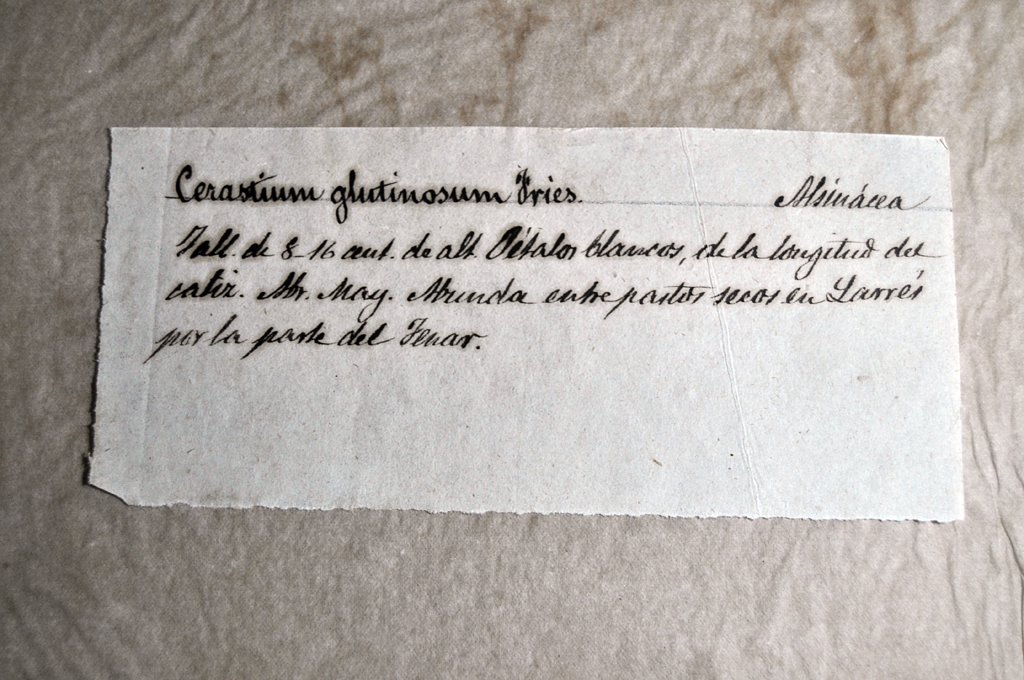 Cerastium glutinosum Fries. Alsinácea
Tall. de 8-16 cent. de alt. Pétalos blancos, de la longitud del
caliz. Abr. May. Abunda entre pastos secos en Larrés
por la parte del Fenar.